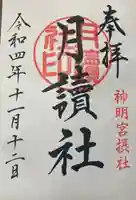 奉拝
神明宮摂社
月讀社
令和四年十一月十二日